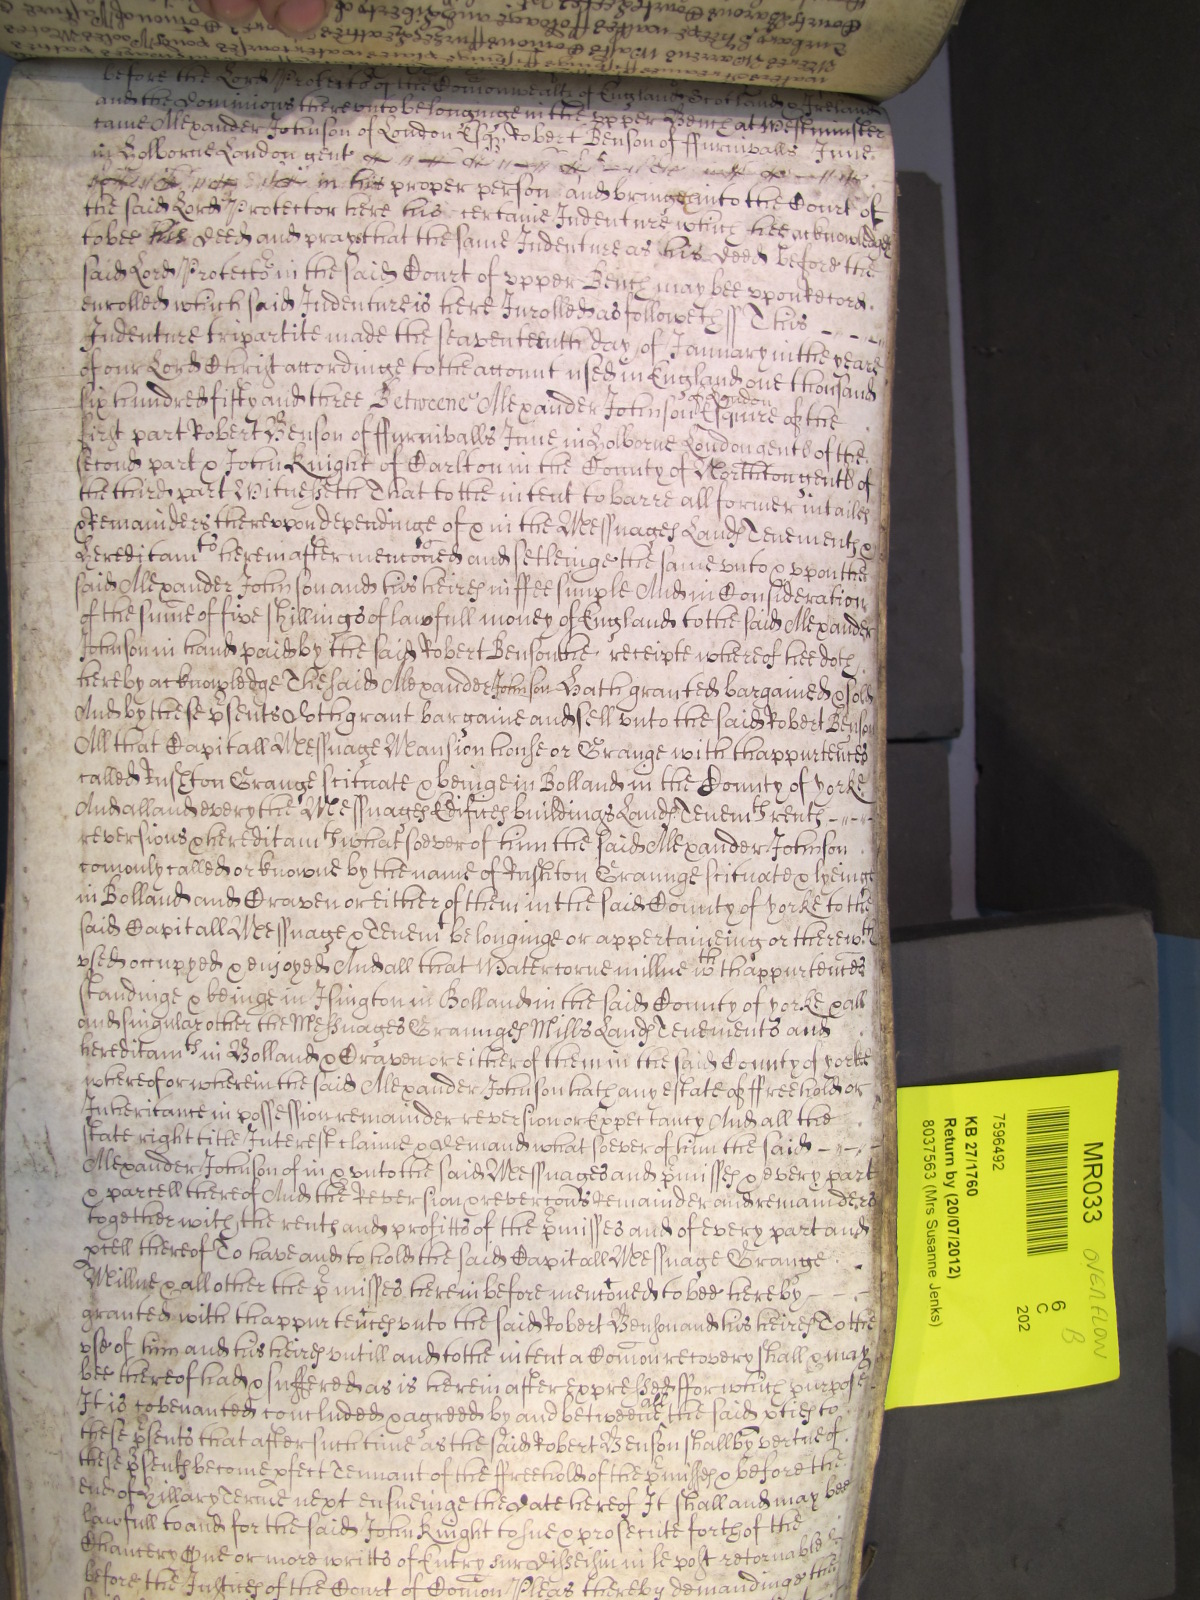 before the Lord Protector of the Comonwealth of England Scotland & Ireland
and the dominions thereunto belonginge in the upper Bench at Westminster
came Alexander Johnson of London Esqr Robert Benson of ffurnivalls Inne
in Holborne London gent
in his proper person and bringes into the Court of
the said Lord Protector here his certaine Indenture which hee acknowledges
to bee his deed and prays that the same Indenture as his deed before the
said Lord Protector in the said Court of upper Bench may bee upon record
enrolled which said Indenture is here Inrolled as followeth ss This
Indenture tripartite made the seaventeenth day of January in the yeare
of our Lord Christ accordinge to the account used in England one thousand
six hundred fifty and three Betweene Alexander Johnson of London Esquire of the
first part Robert Benson of ffurnivalls Inne in Holborne London gent of the
second part & John Knight of Carlton in the County of Northton gent of
the third part Witnesseth That to the intent to barre all former intailes
& Remainders thereupon dependinge of & in the Messuages Lands Tenements &
Hereditamts hereinafter menconed and setleinge the same unto & upon the
said Alexander Johnson and his heires in ffee simple And in Consideration
of the sume of five shillings of lawfull money of England to the said Alexander
Johnson in hand paid by the said Robert Benson the receipte whereof hee doth
hereby acknowledge The said Alexander Johnson Hath granted bargained & sold
And by these psents Doth grant bargaine and sell unto the said Robert Benson
All that Capitall Messuage Mansion house or Grange with thappurtences
called Rushton Grange scituate & beinge in Bolland in the County of yorke
And all and every the Messuages Edifices buildings Lands Tenemts rents
reversions & hereditamts whatsoever of him the said Alexander Johnson
comonly called or knowne by the name of Rushton Graunge scituate & lyeinge
in Bolland and Craven or either of them in the said County of yorke to the
said Capitall Messuage & Tenemt belonginge or appertaineing or therewth
used occupyed & enjoyed And all that Watercorne millne wth thappurtences
standinge & beinge in Isington in Bolland in the said County of yorke & all
and singular other the Messuages Graunges Mills Lands Tenements and
hereditamts in Bolland & Craven or either of them in the said County of yorke
whereof or wherein the said Alexander Johnson hath any estate of ffreehold or
Inheritance in possession remainder reversion or Expectancy And all the
state right title Interest claime & demand whatsoever of him the said
Alexander Johnson of in & unto the said Messuages and pmisses & every part
& parcell thereof And the Reversion & revercons Remainder and remainders
together with the rents and profitts of the pmisses and of every part and
pcell thereof To have and to hold the said Capitall Messuage Grange
Millne & all other the pmisses herein before mentoned to bee hereby
granted with thappurtences unto the said Robert Benson and his heires To the
use of him and his heires untill and to the intent a Comon recovery shall & may
bee thereof had & suffered as is herein after expressed ffor which purpose
It is covenanted concluded & agreed by and betweene all the said pties to
these psents that after such time as the said Robert Benson shall by vertue of
these psents become pfect Tennant of the ffreehold of the pmisses & before the
end of Hillary Terme next ensueinge the date hereof It shall and may bee
lawfull to and for the said John Knight to sue & prosecute forth of the
Chancery One or more writts of Entry sur disseisin in le post retornable
before the Justices of the Court of Comon Pleas thereby demandinge the
MR033
OVERFLOW
B
6
C
202
7596492
KB 27/1760
Return by (20/07/2012)
8037563 (Mrs Susanne Jenks)